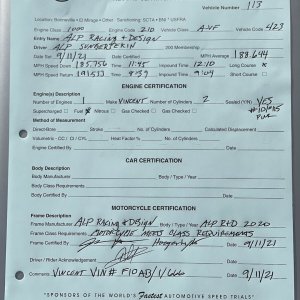 Vehicle Number 113
Location: Bonneville • El Mirage • Other: Sanctioning: SCTA / BNI • USFRA
Engine Class 1000 Engine CID 210 Class A-VF Vehicle 423
Entry Name ALP RACING & DESIGN
Driver ALP SUNGURTEKIN 200 Membership
Date 9/11/21 MPH Average 188.644
MPH Speed Down 185.756 Time 11:45 Impound Time 12:10 Long Course
MPH Speed Return 191.533 Time 9:39 Impound Time 9:04 Short Course
ENGINE CERTIFICATION
Engine(s) Description
Number of Engines 1 Make VINCENT Number of Cylinders 2 Sealed (Y/N) YES
Supercharged Fuel Nitrous Gas Checked Gas Checked
Method of Measurement:
Direct/Bore Stroke No. of Cylinders Calculated Displacement
Volumetric - CC / CI / CYL Heat Factor % No. of Cylinders Total
Engine Certified By Date
CAR CERTIFICATION
Body Description
Body Manufacturer Body / Type / Year
Body Class Requirements
Body Certified By Date
MOTORCYCLE CERTIFICATION
Frame Description
Frame Manufacturer ALP RACING & DESIGN Body / Type / Year ALP R&D 2020
Frame Class Requirements MOTORCYCLE MEETS CLASS REQUIREMENTS
Frame Certified By Date 9/11/21
Driver / Rider Acknowledgement Date
Comments VINCENT VIN# F10AB/1/666 Date 9/11/21
"SPONSORS OF THE WORLD'S Fastest AUTOMOTIVE SPEED TRIALS"